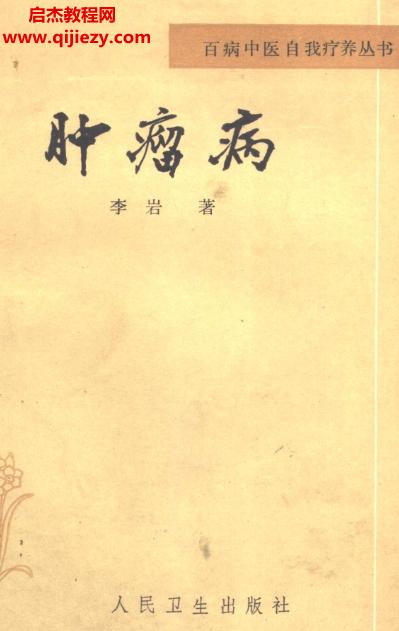 启杰教程网
www.qijiezy.com
百病中医自我疗养丛书
肿瘤病
李岩 著
人民卫生出版社